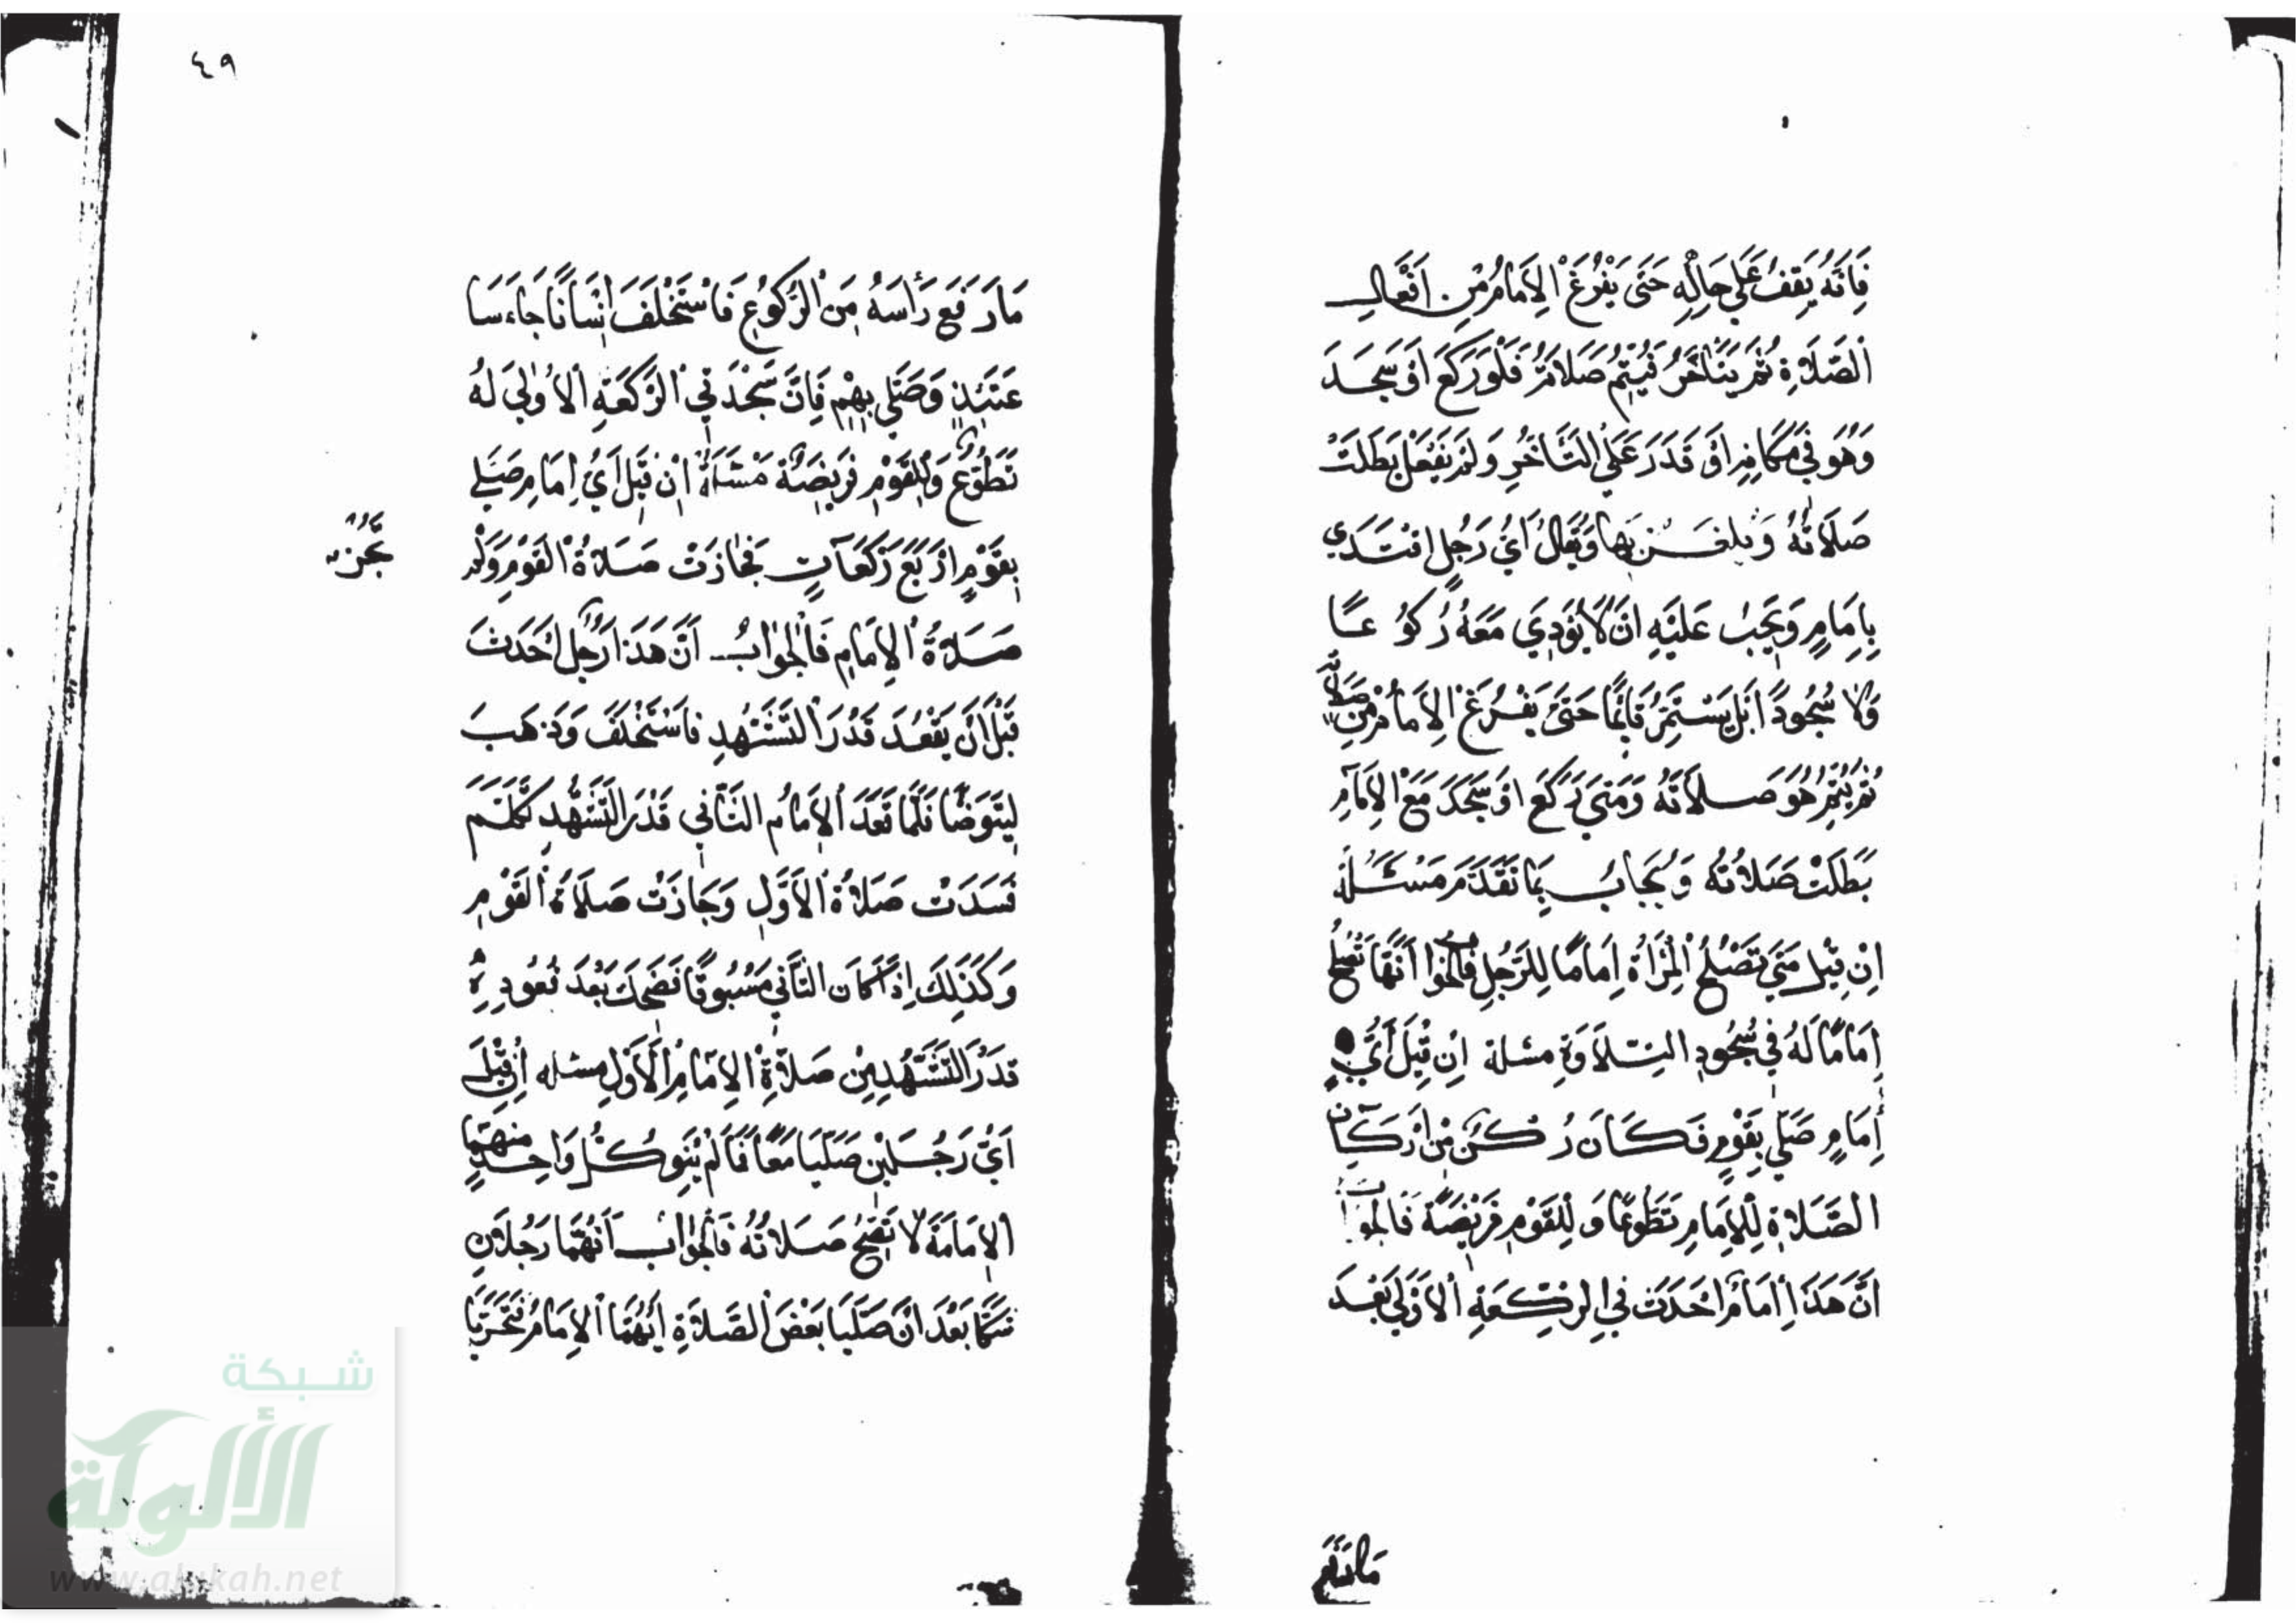 فَإِنَّهُ يَقِفُ عَلَى حَالِهِ حَتَّى يَفْرُغَ الْإِمَامُ مِنْ أَفْعَالِ
الصَّلَاةِ ثُمَّ يَتَأَخَّرُ فَيُتِمُّ صَلَاتَهُ فَلَوْ رَكَعَ أَوْ سَجَدَ
وَهُوَ فِي مَكَانِهِ أَوْ قَدَرَ عَلَى التَّأَخُّرِ وَلَمْ يَفْعَلْ بَطَلَتْ
صَلَاتُهُ وَيُلْغَزُ بِهَا وَيُقَالُ أَيُّ رَجُلٍ اقْتَدَى
بِإِمَامٍ وَيَجِبُ عَلَيْهِ أَنْ لَا يُؤَدِّيَ مَعَهُ رُكُوعًا
وَلَا سُجُودًا بَلْ يَسْتَمِرُّ قَائِمًا حَتَّى يَفْرُغَ الْإِمَامُ مِنْ صَلَاتِهِ
ثُمَّ يُتِمُّ هُوَ صَلَاتَهُ وَمَتَى رَكَعَ أَوْ سَجَدَ مَعَ الْإِمَامِ
بَطَلَتْ صَلَاتُهُ وَيُجَابُ بِمَا تَقَدَّمَ مَسْئَلَة
إِنْ قِيلَ مَتَى تَصْلُحُ الْمَرْأَةُ إِمَامًا لِلرَّجُلِ فَالْجَوَابُ أَنَّهَا تَصْلُحُ
إِمَامًا لَهُ فِي سُجُودِ التِّلَاوَةِ مسئلة إِنْ قِيلَ أَيُّ
إِمَامٍ صَلَّى بِقَوْمٍ فَكَانَ رُكْنٌ مِنْ أَرْكَانِ
الصَّلَاةِ لِلْإِمَامِ تَطَوُّعًا وَلِلْقَوْمِ فَرِيضَةً فَالْجَوَابُ
أَنَّ هَذَا إِمَامٌ أَحْدَثَ فِي الرَّكْعَةِ الْأُولَى بَعْدَ
مَا رَفَعَ
٤٩
مَا رَفَعَ رَأْسَهُ مِنَ الرُّكُوعِ فَاسْتَخْلَفَ إِنْسَانًا جَاءَ سَا
عَتَئِذٍ وَصَلَّى بِهِمْ فَإِنَّ سَجْدَتَيِ الرَّكْعَةِ الْأُولَى لَهُ
تَطَوُّعٌ وَلِلْقَوْمِ فَرِيضَةٌ مَسْئَلَةٌ إِنْ قِيلَ أَيُّ إِمَامٍ صَلَّى
بِقَوْمٍ أَرْبَعَ رَكَعَاتٍ فَجَازَتْ صَلَاةُ الْقَوْمِ وَلَمْ
تَجُزْ
صَلَاةُ الْإِمَامِ فَالْجَوَابُ أَنَّ هَذَا رَجُلٌ أَحْدَثَ
قَبْلَ أَنْ يَقْعُدَ قَدْرَ التَّشَهُّدِ فَاسْتَخْلَفَ وَذَهَبَ
لِيَتَوَضَّأَ فَلَمَّا قَعَدَ الْإِمَامُ الثَّانِي قَدْرَ التَّشَهُّدِ تَكَلَّمَ
فَسَدَتْ صَلَاةُ الْأَوَّلِ وَجَازَتْ صَلَاةُ الْقَوْمِ
وَكَذَلِكَ إِذَا كَانَ الثَّانِي مَسْبُوقًا فَضَحِكَ بَعْدَ قُعُودِهِ
قَدْرَ التَّشَهُّدِ مِنْ صَلَاةِ الْإِمَامِ الْأَوَّلِ مسئله إِنْ قِيلَ
أَيُّ رَجُلَيْنِ صَلَّيَا مَعًا فَمَا لَمْ يَنْوِ كُلُّ وَاحِدٍ مِنْهُمَا
الْإِمَامَةَ لَا تَصِحُّ صَلَاتُهُ فَالْجَوَابُ أَنَّهُمَا رَجُلَانِ
شَكَّا بَعْدَ أَنْ صَلَّيَا بَعْضَ الصَّلَاةِ أَيُّهُمَا الْإِمَامُ فَتَحَرَّيَا
شبكة
الألوكة
www.alukah.net